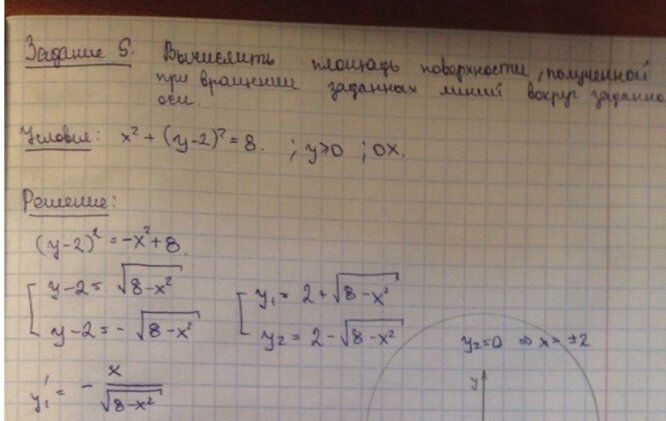 Задание 5. Вычислить площадь поверхности, полученной
при вращении заданных линий вокруг заданно
оси.
Условия: x² + (y-2)² = 8. ; y>0 ; OX.
Решение:
(y-2)² = -x² + 8.
[ y-2 = √(8-x²) [ y₁ = 2 + √(8-x²)
y-2 = - √(8-x²) y₂ = 2 - √(8-x²) y₂=0 ⇒ x = ±2
y₁' = - x/√(8-x²) y